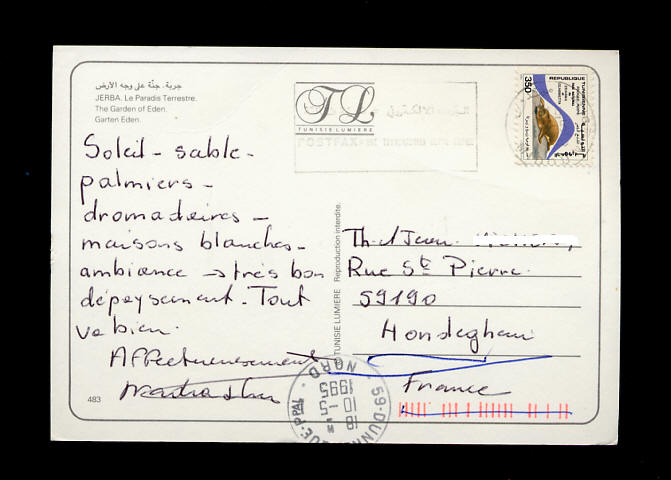 جربة. جنّة على وجه الارض
JERBA. Le Paradis Terrestre.
The Garden of Eden.
Garten Eden.
TL
TUNISIE LUMIERE
POSTFAX
REPUBLIQUE TUNISIENNE
350
Soleil - sable -
palmiers -
dromadaires -
maisons blanches -
ambiance → très bon
dépaysement. Tout
va bien.
Affectueusement
483
TUNISIE LUMIERE Reproduction interdite.
Th. et Jean
Rue Ste Pierre
59190
Hondeghem
France
59-DUNKERQUE-PPAL
18 H
10 - 5
1995
NORD